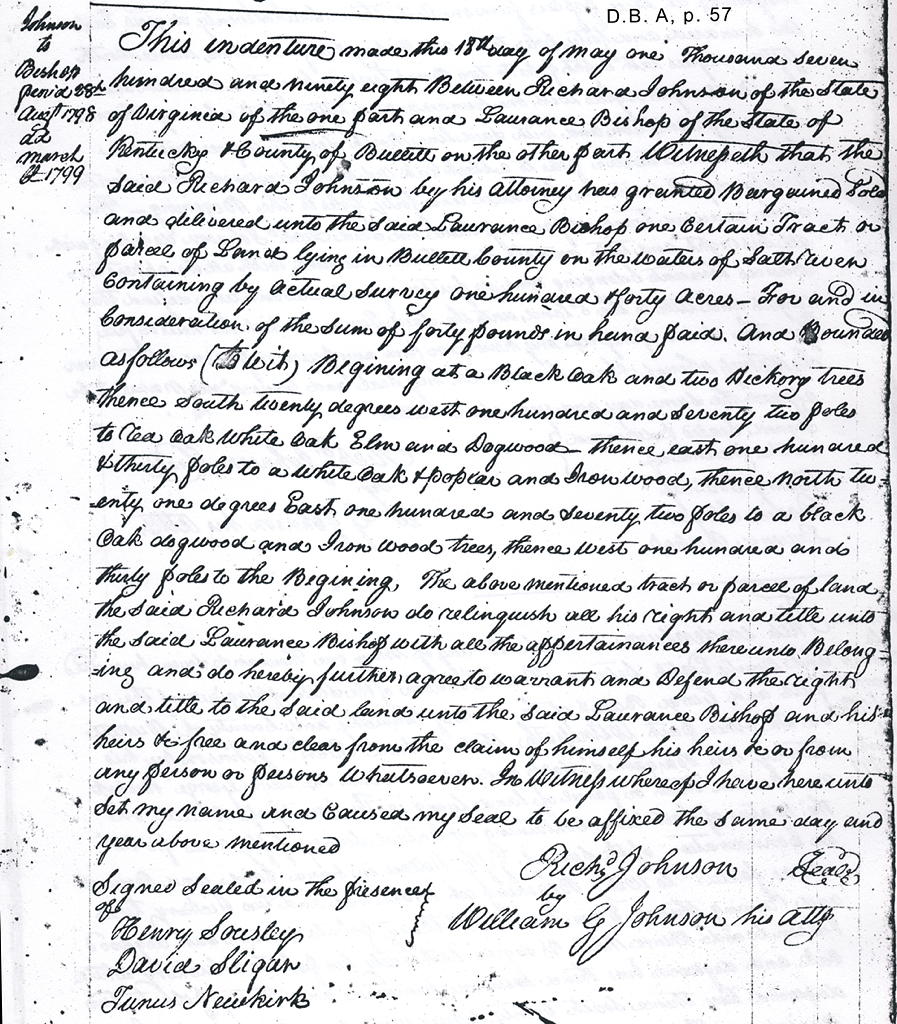 D.B. A, p. 57
Johnson
to
Bishop
per'd 28th
Augt 1798
dd
March
1799
This indenture made this 18th day of May one Thousand Seven
hundred and ninety eight Between Richard Johnson of the State
of Virginia of the one part and Laurance Bishop of the State of
Kentucky & County of Bullitt on the other part Witnesseth that the
Said Richard Johnson by his Attorney has granted Bargained Sold
and delivered unto the Said Laurance Bishop one Certain Tract or
parcel of Land lying in Bullett County on the waters of Salt River
Containing by actual Survey one hundred & forty Acres - For and in
Consideration of the Sum of forty pounds in hand paid. And Bounded
as follows (To Wit) Begining at a Black Oak and two Hickory trees
thence South twenty degrees west one hundred and Seventy two poles
to Red Oak White Oak Elm and Dogwood - thence east one hundred
& thirty poles to a White Oak & poplar and Iron wood, thence North tw=
=enty one degrees East one hundred and Seventy two poles to a black
Oak dogwood and Iron wood trees, thence west one hundred and
thirty poles to the Begining, The above mentioned tract or parcel of land
the Said Richard Johnson do relinquish all his right and title unto
the said Laurance Bishop with all the appertainances there unto Belong=
=ing and do hereby further agree to warrant and Defend the right
and title to the Said land unto the Said Laurance Bishop and his
heirs &c free and clear from the claim of himself his heirs &c or from
any person or persons Whatsoever. In Witness whereof I have here unto
Set my name and Caused my Seal to be affixed the Same day and
year above mentioned
Richd Johnson Seal
by
William G Johnson his atty
Signed Sealed in the presence
of
Henry Sousley
David Sligar
Tunus Newkirk